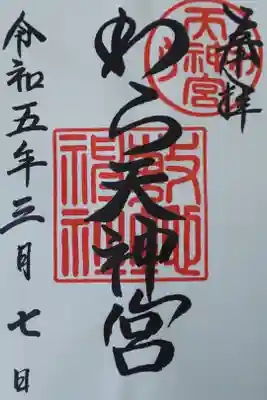 奉拝
わら天神宮
敷地神社
天神宮
令和五年三月七日